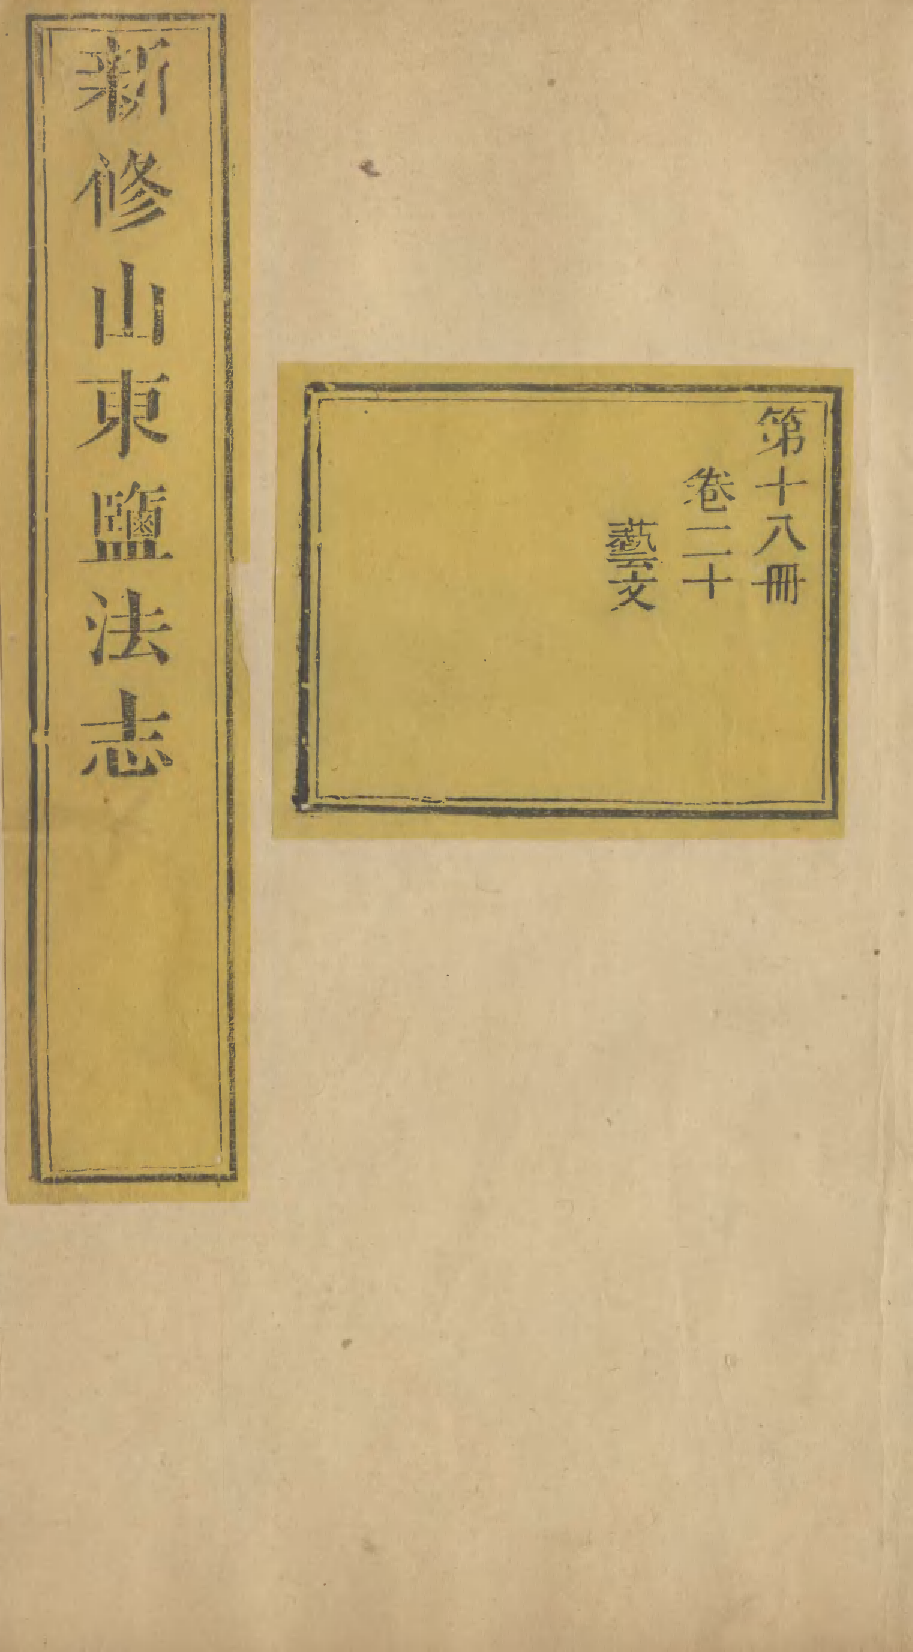 第十八冊
卷二十
藝文
新修山東鹽法志